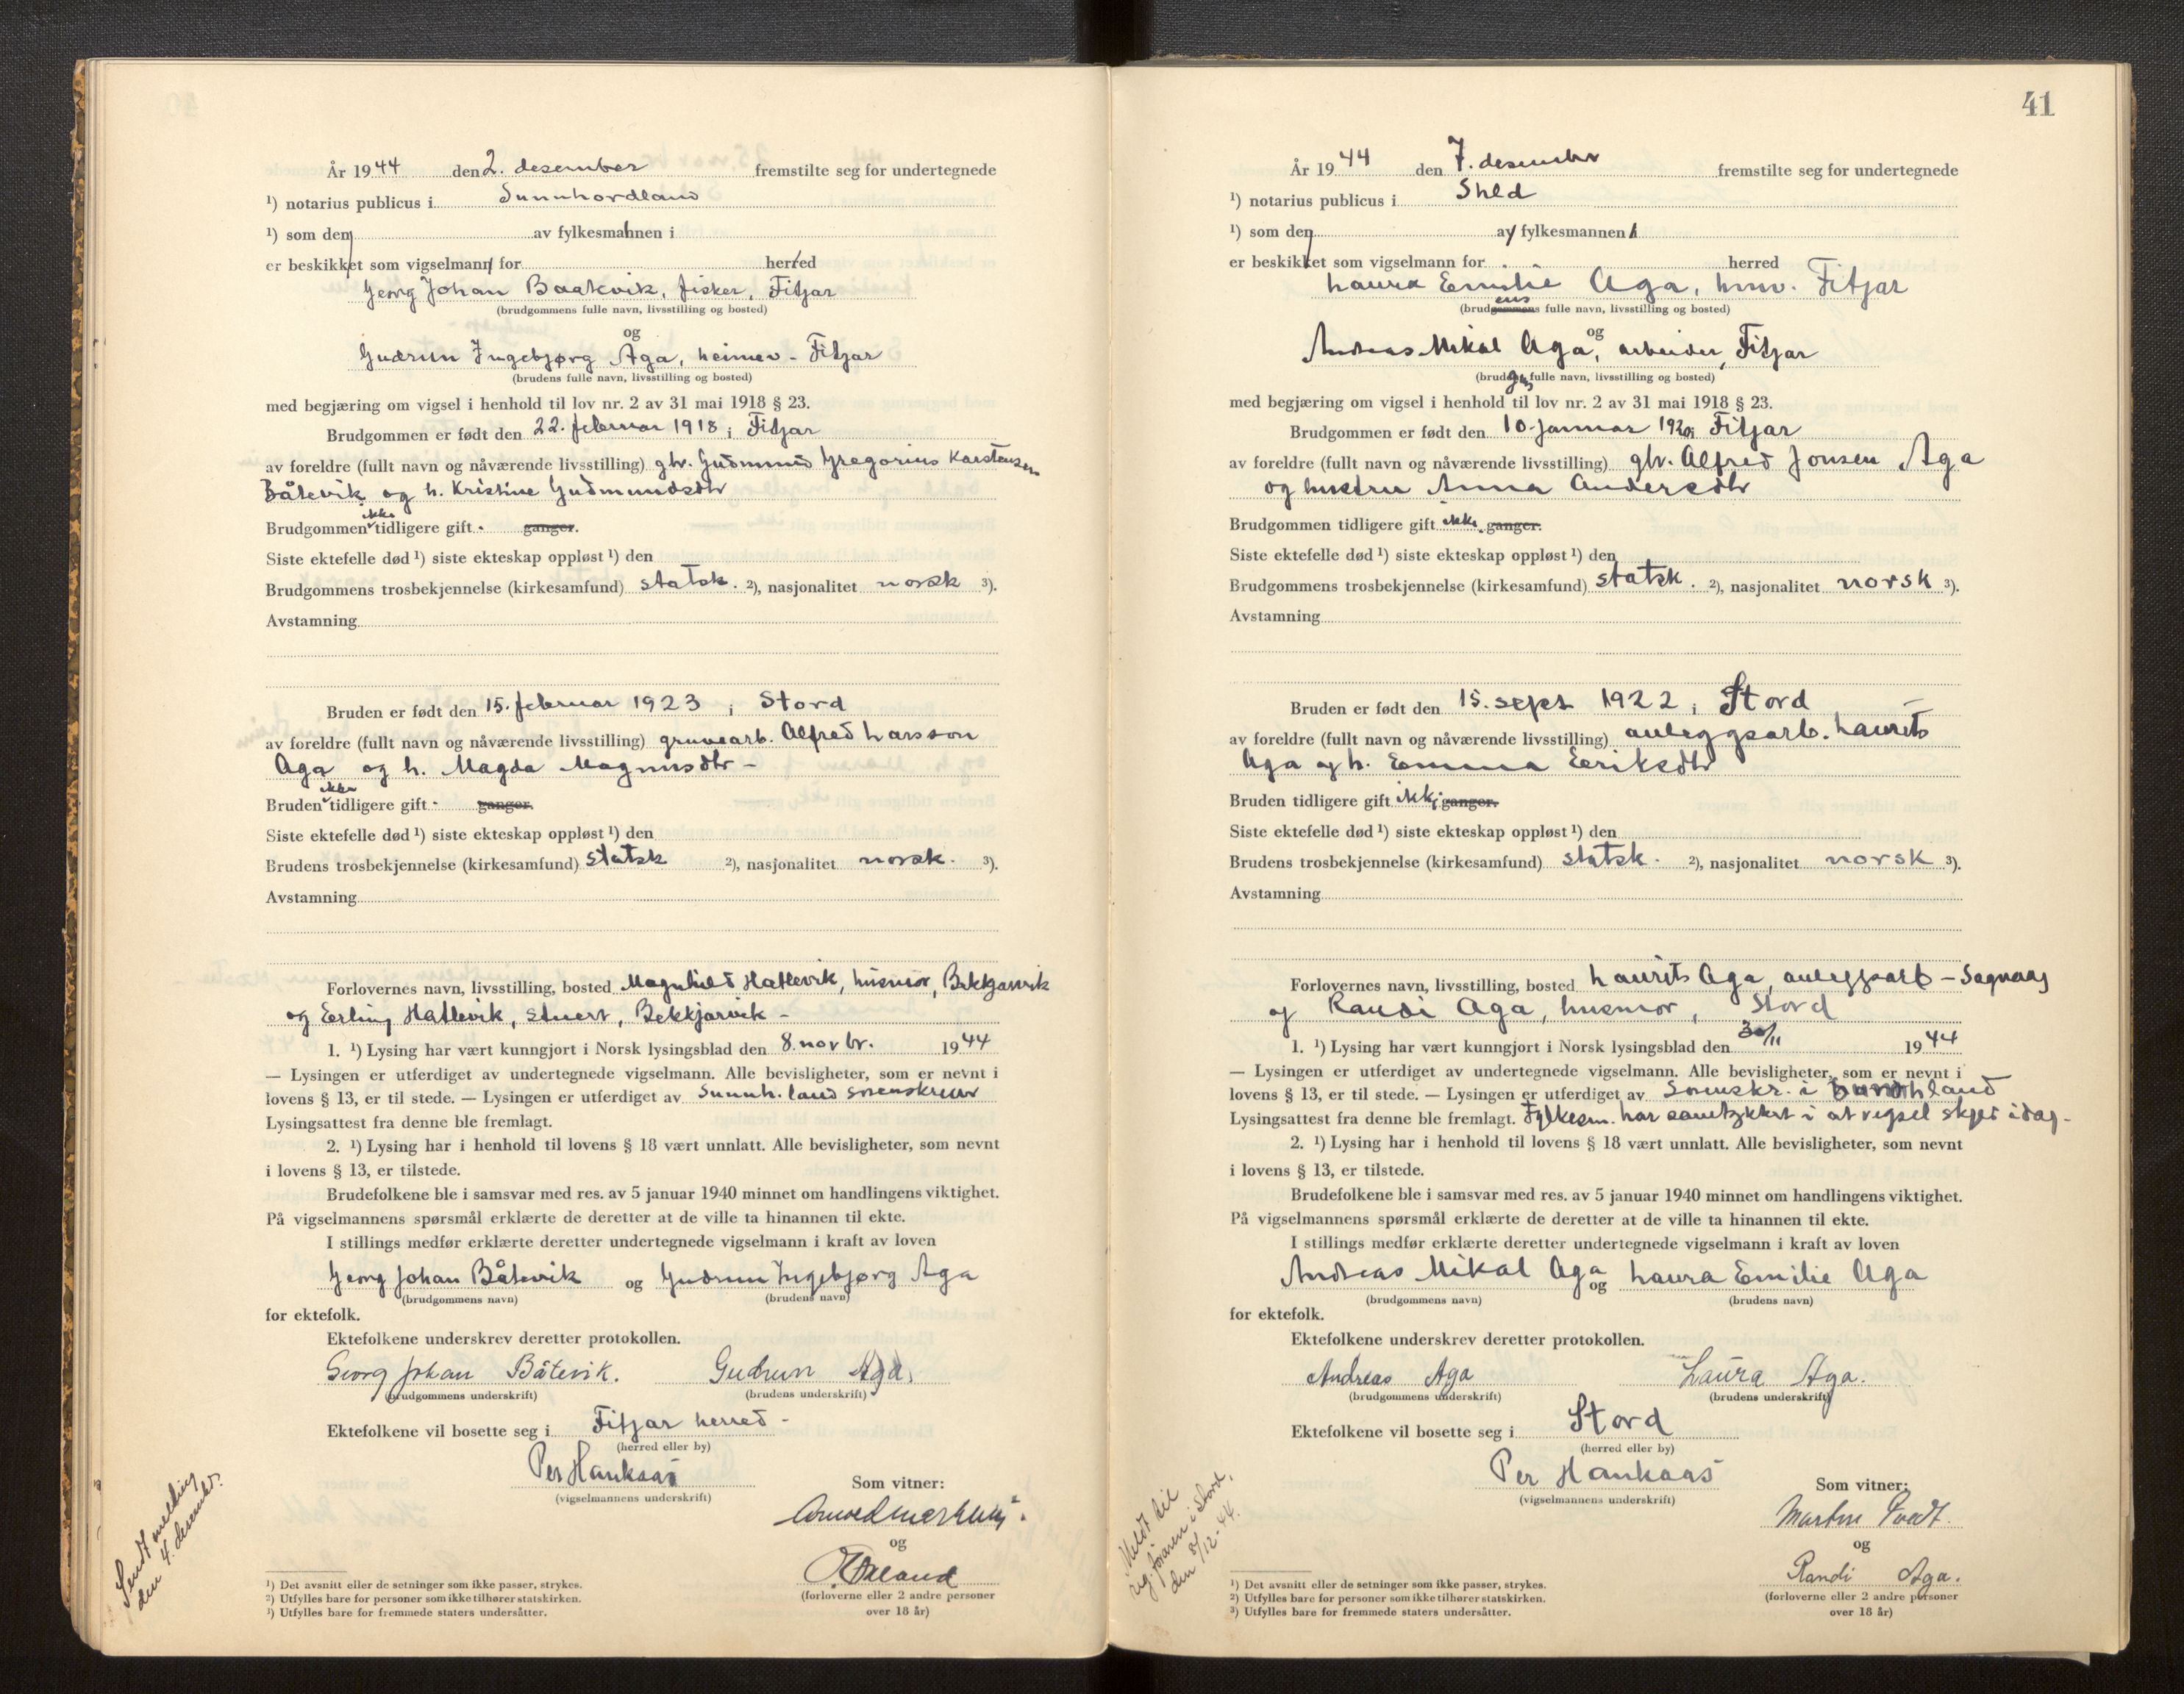 År 1944 den 2. desember fremstilte seg for undertegnede
¹) notarius publicus i Sunnhordland
¹) som den av fylkesmannen i
er beskikket som vigselmann for herred
Georg Johan Baatevik, fisker, Fitjar
(brudgommens fulle navn, livsstilling og bosted)
og
Gudrun Ingebjørg Aga, heimev - Fitjar
(brudens fulle navn, livsstilling og bosted)
med begjæring om vigsel i henhold til lov nr. 2 av 31 mai 1918 § 23.
Brudgommen er født den 22. februar 1918 i Fitjar
av foreldre (fullt navn og nåværende livsstilling) gbr. Gudmund Gregorius Karstensen
Båtevik og h. Kristine Gudmundsdtr
Brudgommen ikke tidligere gift - ganger.
Siste ektefelle død ¹) siste ekteskap oppløst ¹) den
Brudgommens trosbekjennelse (kirkesamfund) statsk. ²), nasjonalitet norsk ³).
Avstamning
Bruden er født den 15. februar 1923 i Stord
av foreldre (fullt navn og nåværende livsstilling) gruvearb. Alfred Larsson
Aga og h. Magda Magnusdtr -
Bruden ikke tidligere gift - ganger.
Siste ektefelle død ¹) siste ekteskap oppløst ¹) den
Brudens trosbekjennelse (kirkesamfund) statsk ²), nasjonalitet norsk. ³).
Avstamning
Forlovernes navn, livsstilling, bosted Magnhild Hatlevik, husmor, Bekkjarvik
og Erling Hatlevik, stuert, Bekkjarvik -
1. ¹) Lysing har vært kunngjort i Norsk lysingsblad den 8. novbr. 1944
— Lysingen er utferdiget av undertegnede vigselmann. Alle bevisligheter, som er nevnt i
lovens § 13, er til stede. — Lysingen er utferdiget av Sunnh.land sorenskriver
Lysingsattest fra denne ble fremlagt.
2. ¹) Lysing har i henhold til lovens § 18 vært unnlatt. Alle bevisligheter, som nevnt
i lovens § 13, er tilstede.
Brudefolkene ble i samsvar med res. av 5 januar 1940 minnet om handlingens viktighet.
På vigselmannens spørsmål erklærte de deretter at de ville ta hinannen til ekte.
I stillings medfør erklærte deretter undertegnede vigselmann i kraft av loven
Georg Johan Båtevik og Gudrun Ingebjørg Aga
(brudgommens navn) (brudens navn)
for ektefolk.
Ektefolkene underskrev deretter protokollen.
Georg Johan Båtevik. Gudrun Aga.
(brudgommens underskrift) (brudens underskrift)
Ektefolkene vil bosette seg i Fitjar herred -
(herred eller by)
Per Hankaas
(vigselmannens underskrift)
Som vitner:
og
(forloverne eller 2 andre personer
over 18 år)
Sendt melding
den 4. desember.
¹) Det avsnitt eller de setninger som ikke passer, strykes.
²) Utfylles bare for personer som ikke tilhører statskirken.
³) Utfylles bare for fremmede staters undersåtter.
41
År 1944 den 7. desember fremstilte seg for undertegnede
¹) notarius publicus i
¹) som den av fylkesmannen i
er beskikket som vigselmann for herred
Laura Emilie Aga, hmv. Fitjar
(brudens fulle navn, livsstilling og bosted)
og
Andreas Mikal Aga, arbeider, Fitjar
(brudg. fulle navn, livsstilling og bosted)
med begjæring om vigsel i henhold til lov nr. 2 av 31 mai 1918 § 23.
Brudgommen er født den 10. januar 1920 i Fitjar
av foreldre (fullt navn og nåværende livsstilling) gbr. Alfred Jonsen Aga
og hustru Anna Andersdtr
Brudgommen tidligere gift ikke ganger.
Siste ektefelle død ¹) siste ekteskap oppløst ¹) den
Brudgommens trosbekjennelse (kirkesamfund) statsk. ²), nasjonalitet norsk ³).
Avstamning
Bruden er født den 15. sept 1922 i Stord
av foreldre (fullt navn og nåværende livsstilling) anleggsarb. Laurits
Aga og h. Emma Eeriksdtr
Bruden tidligere gift ikke ganger.
Siste ektefelle død ¹) siste ekteskap oppløst ¹) den
Brudens trosbekjennelse (kirkesamfund) statsk. ²), nasjonalitet norsk ³).
Avstamning
Forlovernes navn, livsstilling, bosted Laurits Aga, anleggsarb - Sagvaag
og Randi Aga, husmor, Stord
1. ¹) Lysing har vært kunngjort i Norsk lysingsblad den 30/11 1944
— Lysingen er utferdiget av undertegnede vigselmann. Alle bevisligheter, som er nevnt i
lovens § 13, er til stede. — Lysingen er utferdiget av Sorenskr. i
Lysingsattest fra denne ble fremlagt. Fylkesm. har samtykket i at vigsel skjer idag -
2. ¹) Lysing har i henhold til lovens § 18 vært unnlatt. Alle bevisligheter, som nevnt
i lovens § 13, er tilstede.
Brudefolkene ble i samsvar med res. av 5 januar 1940 minnet om handlingens viktighet.
På vigselmannens spørsmål erklærte de deretter at de ville ta hinannen til ekte.
I stillings medfør erklærte deretter undertegnede vigselmann i kraft av loven
Andreas Mikal Aga og Laura Emilie Aga
(brudgommens navn) (brudens navn)
for ektefolk.
Ektefolkene underskrev deretter protokollen.
Andreas Aga Laura Aga.
(brudgommens underskrift) (brudens underskrift)
Ektefolkene vil bosette seg i Stord
(herred eller by)
Per Hankaas
(vigselmannens underskrift)
Som vitner:
Martin
og
Randi Aga.
(forloverne eller 2 andre personer
over 18 år)
Meldt til
i Stord,
den 8/12-44.
¹) Det avsnitt eller de setninger som ikke passer, strykes.
²) Utfylles bare for personer som ikke tilhører statskirken.
³) Utfylles bare for fremmede staters undersåtter.